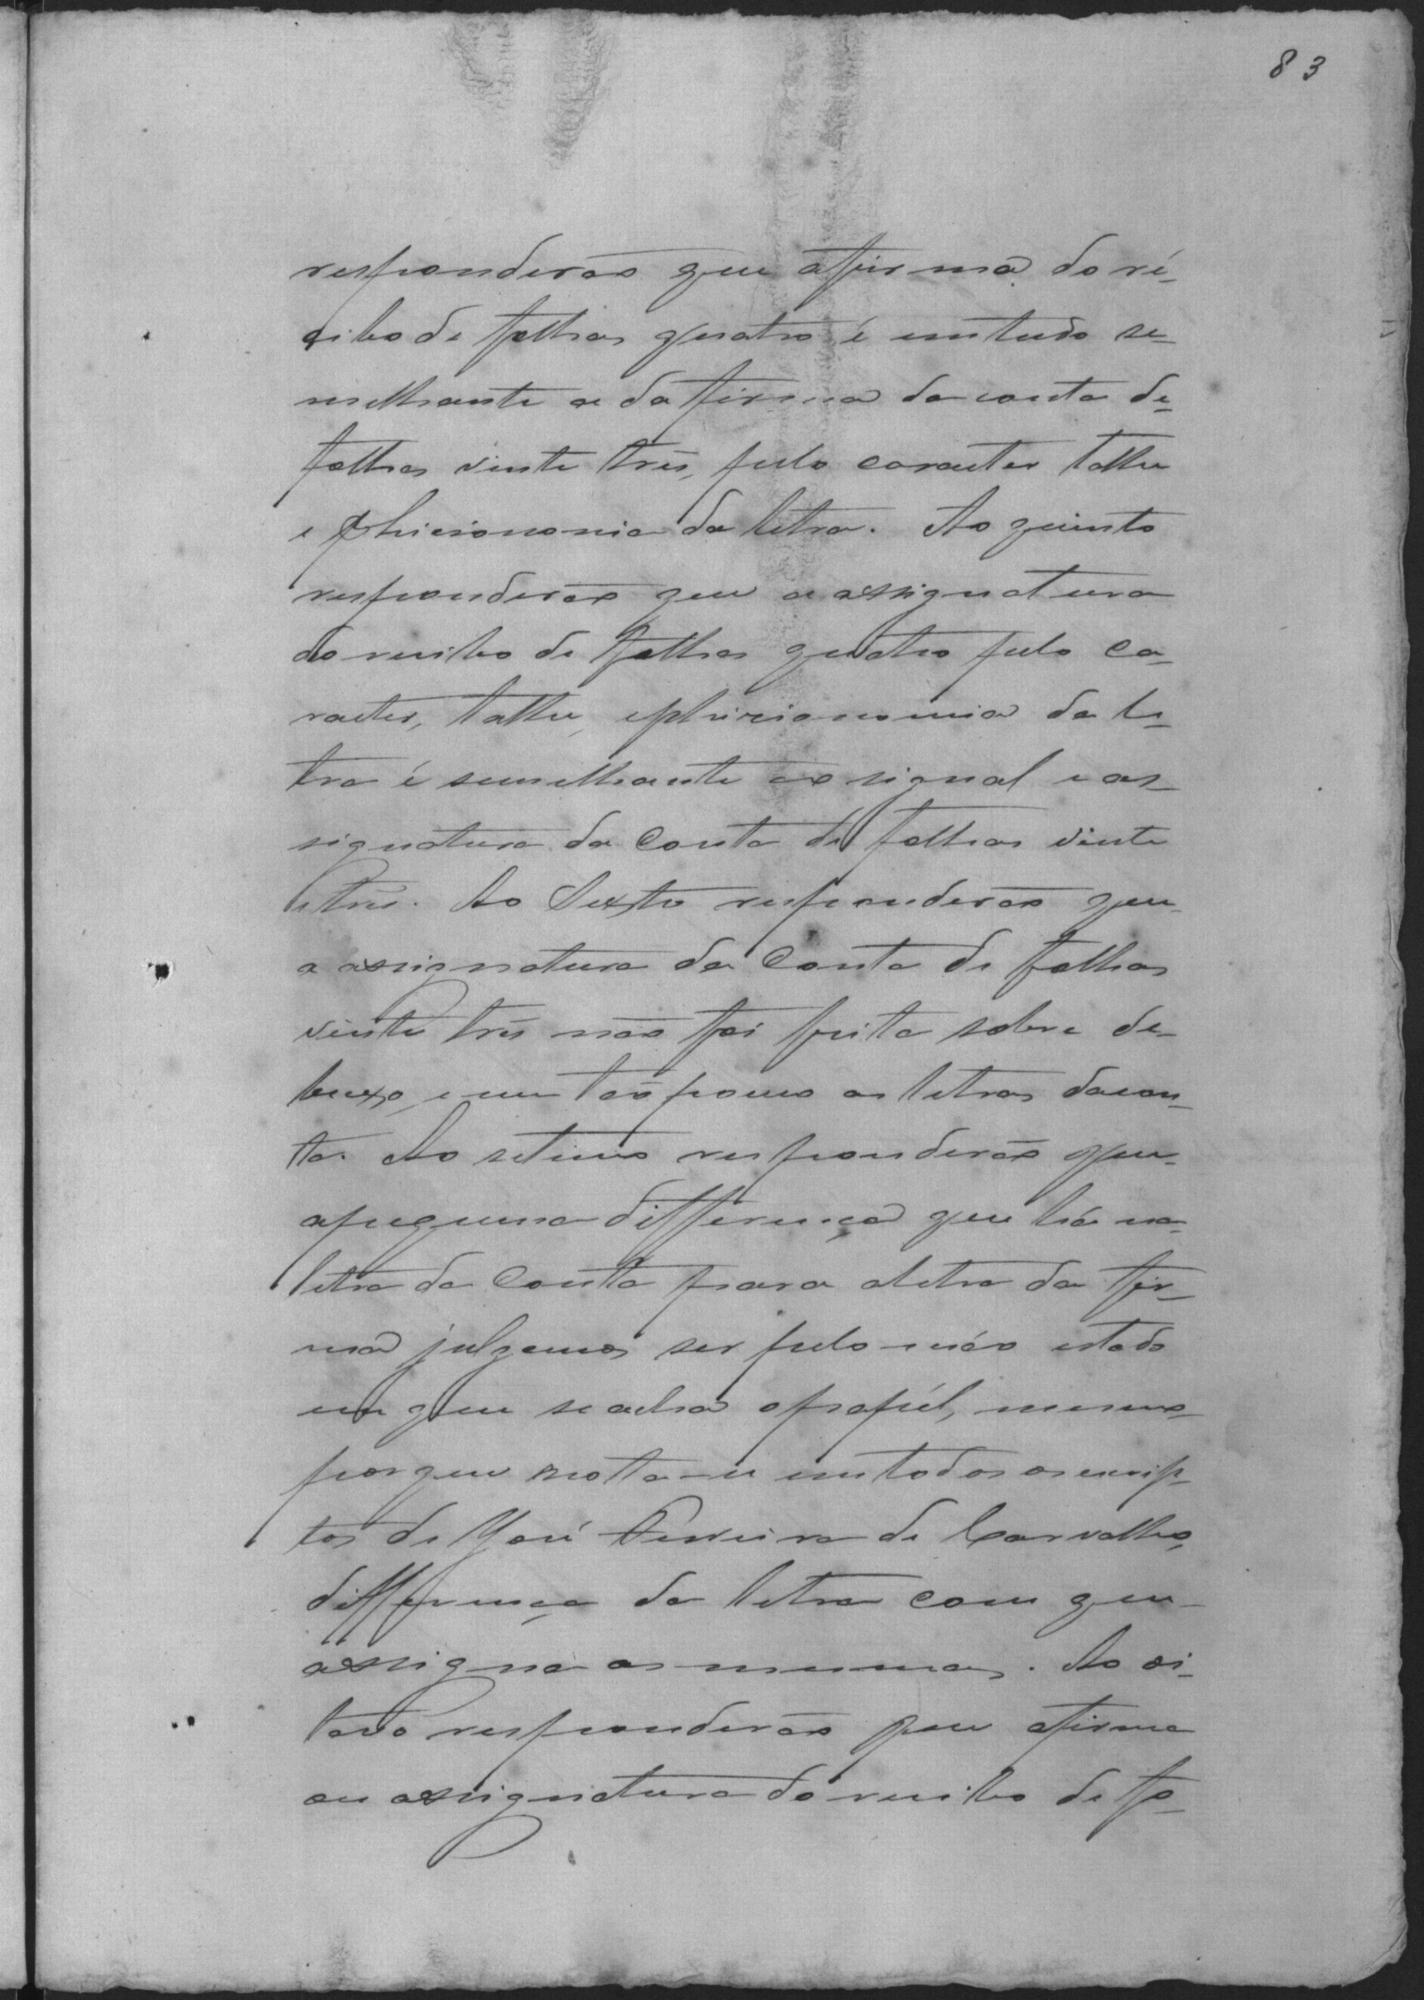 83
responderão que afirma do re-
cibo de folhas quatro é em tudo se-
melhante a da firma da conta de-
folhas vinte tres, pelo caracter talhe
e phisionomia da letra. Ao quinto
responderão que a assignatura
do recibo de folhas quatro pelo ca-
racter, talhe, ephisionomia da le-
tra é semelhante ao signal e as-
signatura da Conta de folhas vinte
e tres. Ao Sexto responderão que
a assignatura da Conta de folhas
vinte tres não foi feita sobre de-
buxo, e nem tão pouco as letras dacon-
ta. Ao setimo responderão que
apequena differença que há na
letra da Conta para aletra da fir-
ma julgamos ser pelo máo estado
em que seacha opapél, mesmo
porque nota-se emtodos osescrip-
tos de José Pereira de Carvalho,
differença da letra com que
assigna os mesmos. Ao oi-
tavo responderão que afirma
ou assignatura do recibo de fo-